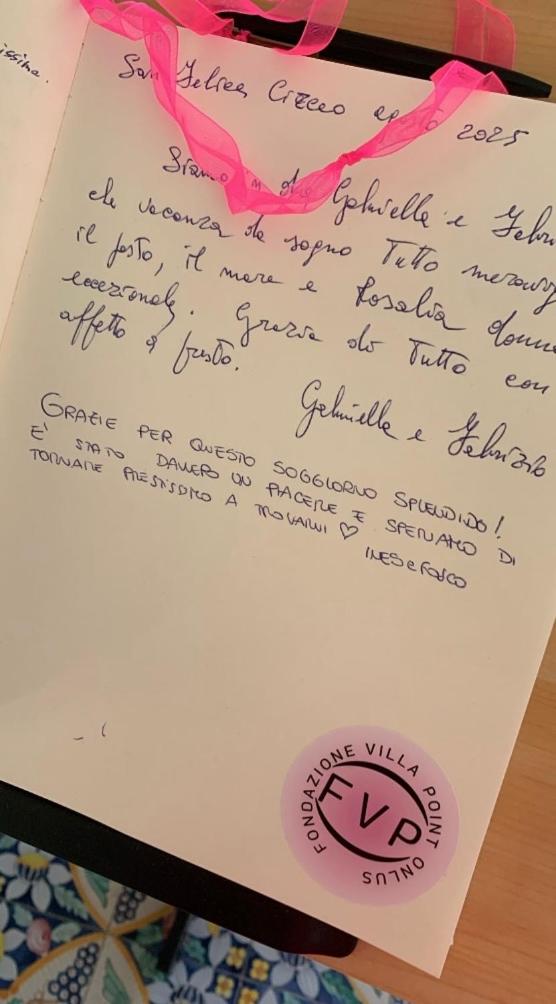 issima.
San Felice Circeo agosto 2025
Siamo in due Gabriella e
che vacanza da sogno Tutto
il posto, il mare e Rosalia
eccezionale. Grazie di Tutto con
affetto
Gabriella e Fabrizio
GRAZIE PER QUESTO SOGGIORNO SPLENDIDO!
E' STATO DAVVERO UN PIACERE E SPERIAMO DI
TORNARE PRESTISSIMO A TROVARVI ♡
INES e FOSCO
FONDAZIONE VILLA POINT ONLUS
FVP